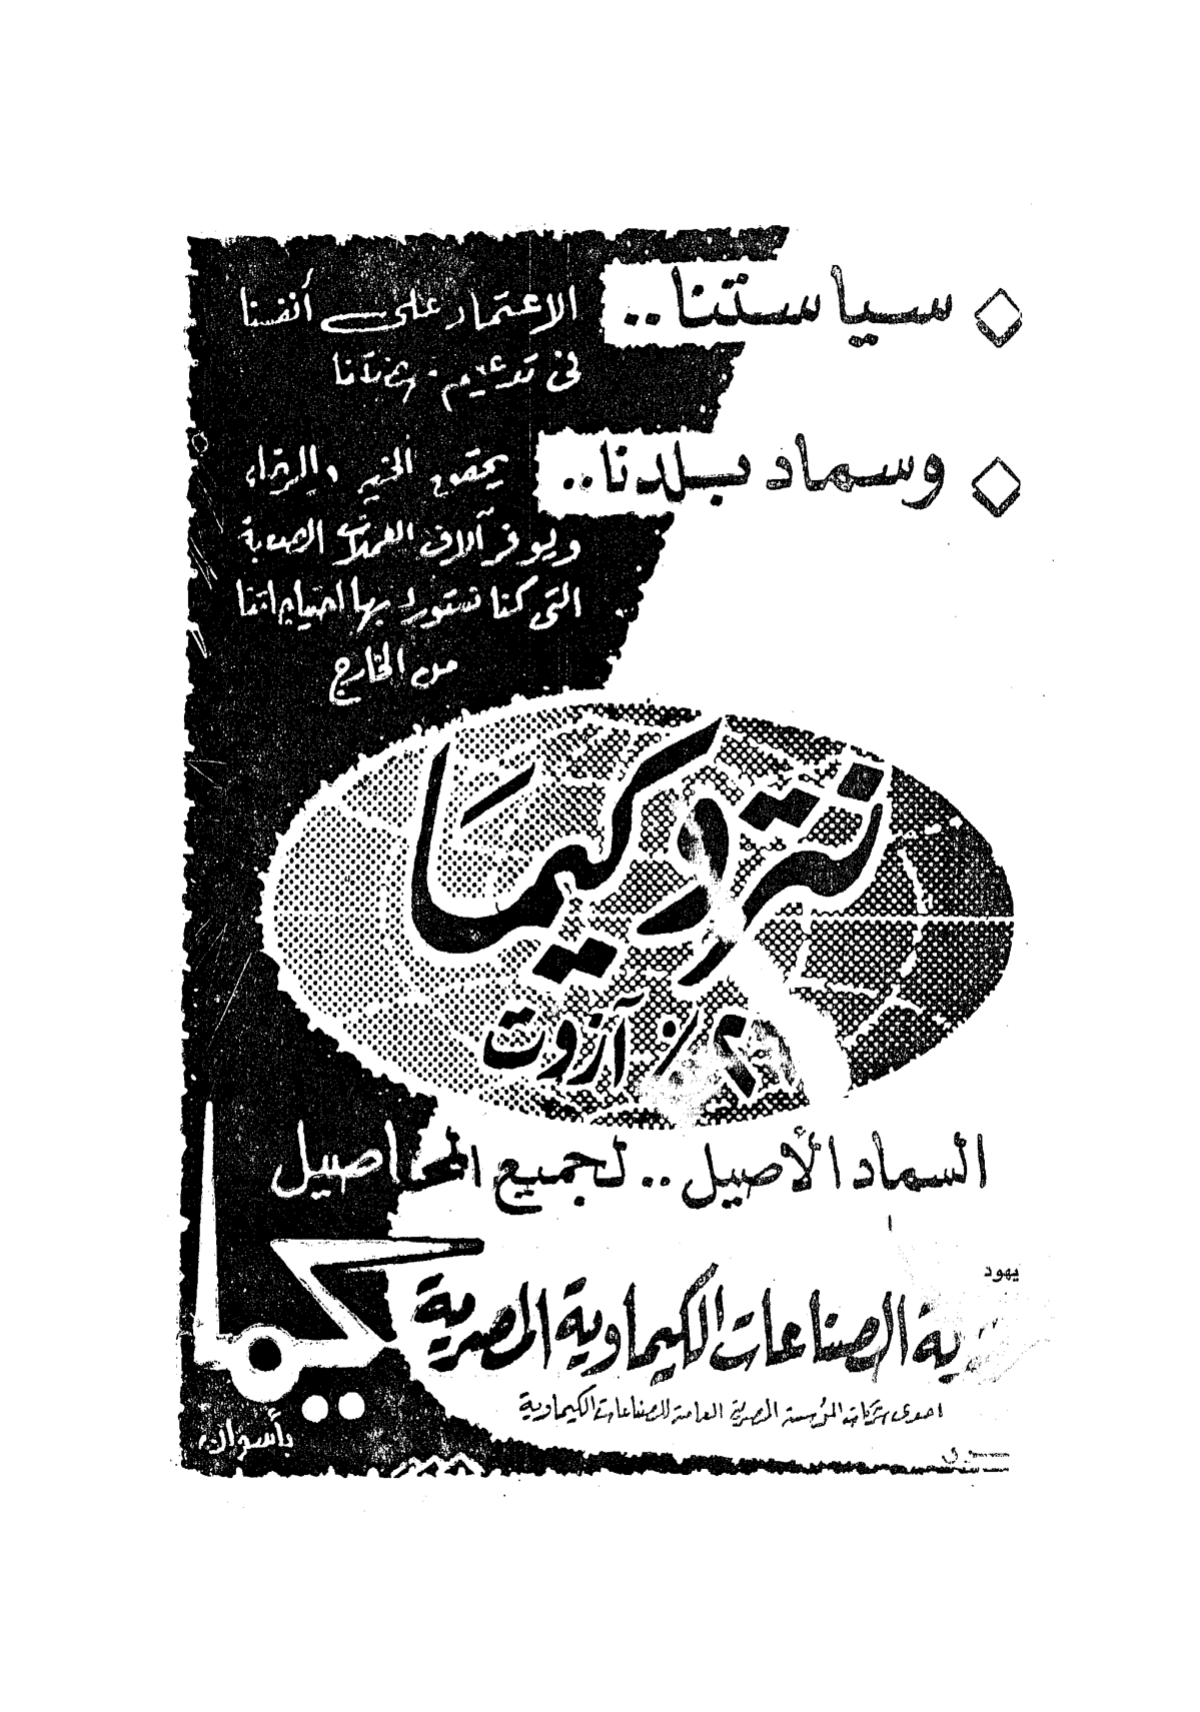 سياستنا.. الاعتماد على أنفسنا
فى تدعيم نهضتنا
وسماد بلدنا.. يحقق الخير والرخاء
ويوفر آلاف العملات الصعبة
التى كنا نستورد بها احتياجاتنا
من الخارج
نتروكيما
٪ آزوت
السماد الأصيل.. لجميع المحاصيل
يهود
الصناعات الكيماوية المصرية
احدى شركات المؤسسة المصرية العامة للصناعات الكيماوية
كيما
بأسوان